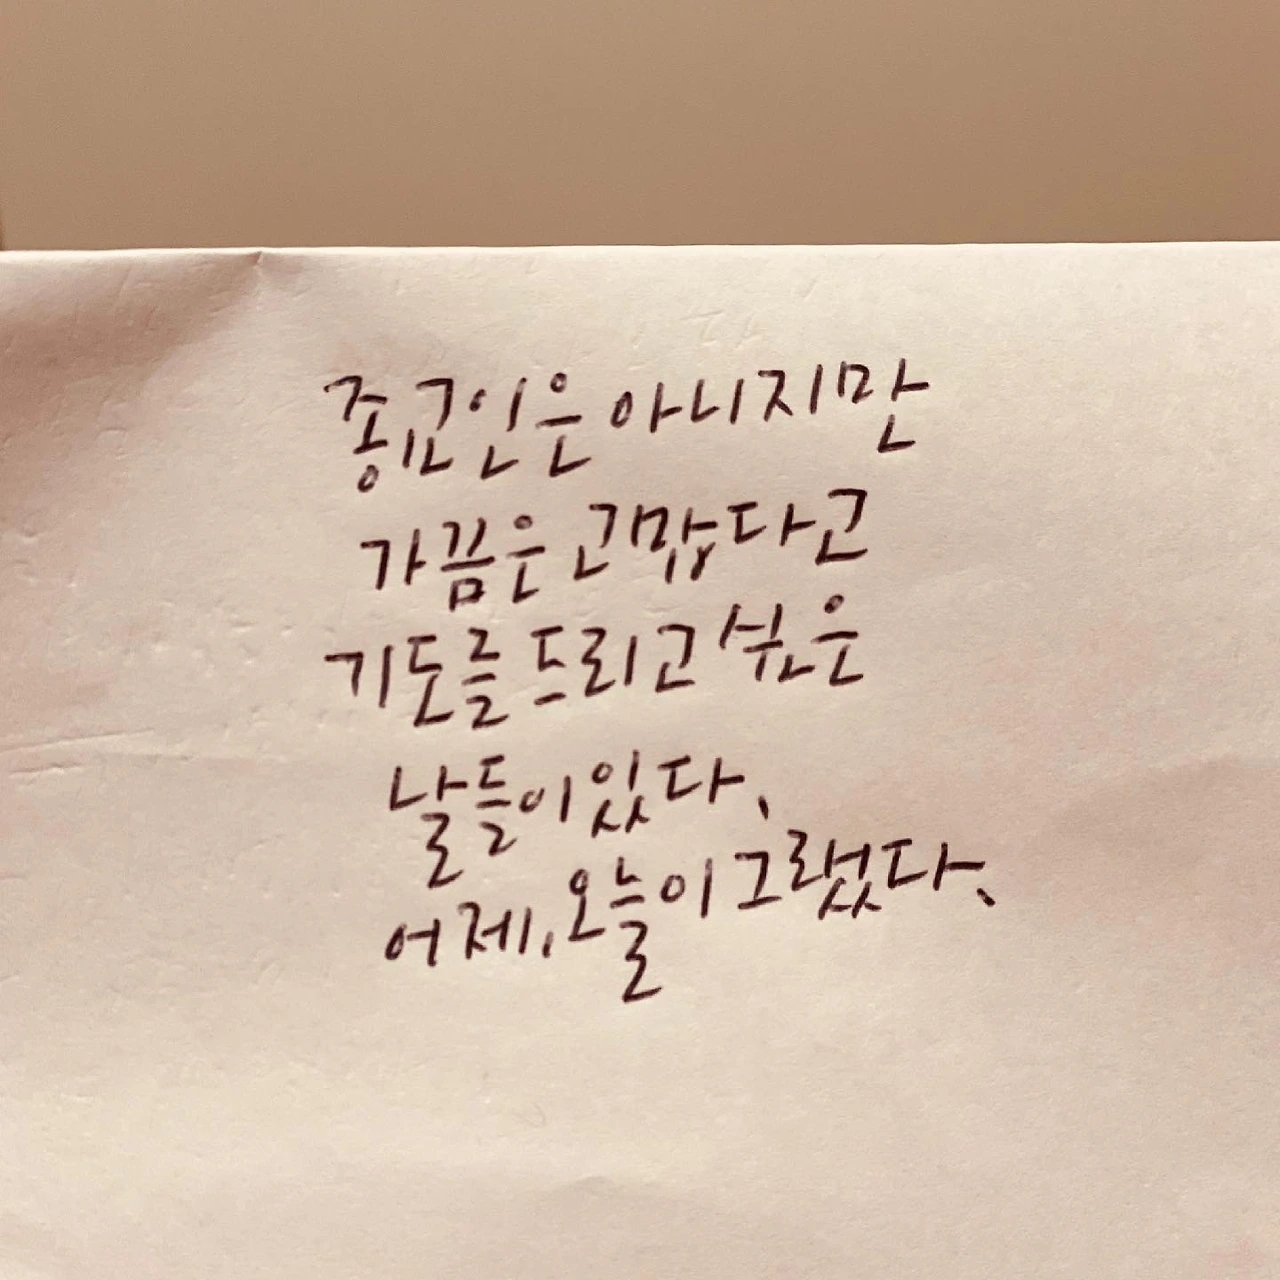 종교인은 아니지만
가끔은 고맙다고
기도를 드리고 싶은
날들이 있다.
어제, 오늘이 그랬다.